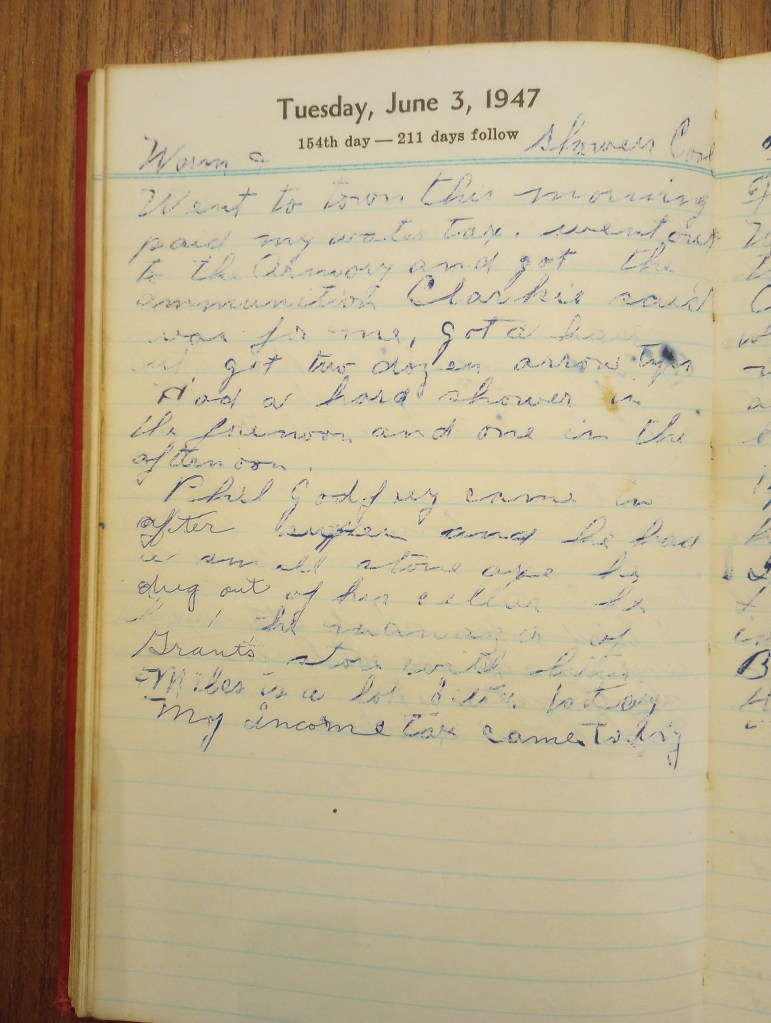 Tuesday, June 3, 1947
154th day — 211 days follow
Warm Showers Cool
Went to town this morning
paid my water tax. went out
to the Armory and got the
ammunition Clarkie said
was for me, got a hair
cut got two dozen arrow tips
Had a hard shower in
the forenoon and one in the
afternoon.
Phil Godfrey came in
after supper and he had
a small stone axe he
dug out of his cellar he
had the manager of
Grant's store with him
Mibes is a lot better today
My income tax came today